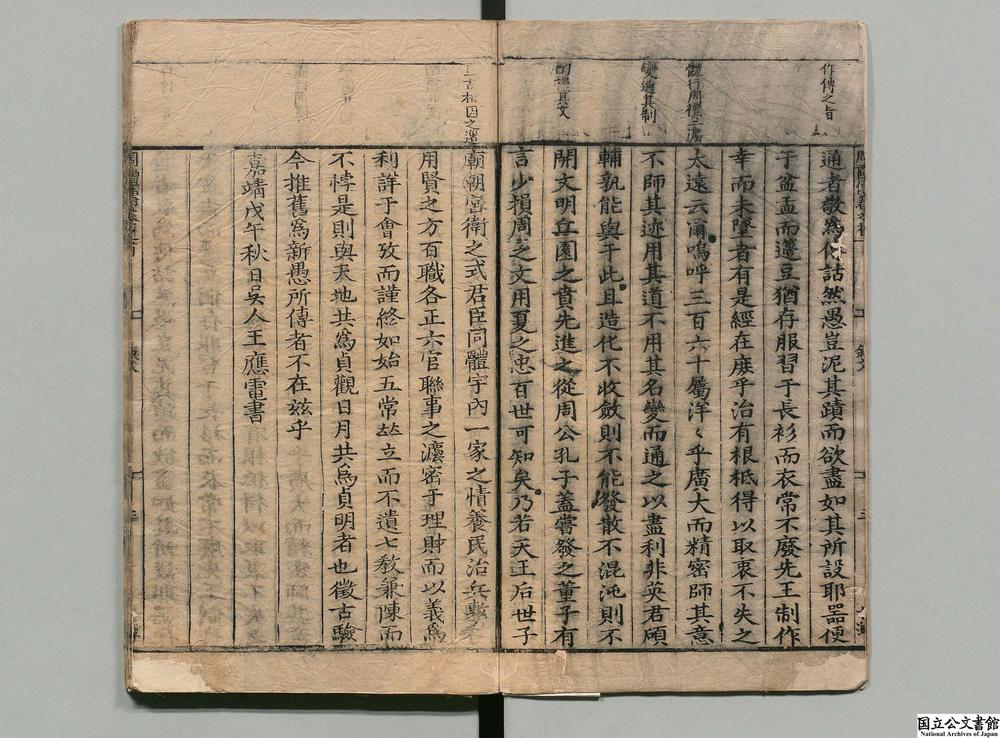 作傳之旨
體行周禮之澷
變通其制
酌損其文
三古相因之道
通者敬爲作詁然愚豈泥其蹟而欲盡如其所設耶器便
于盆盂而籩豆猶存服習于長衫而衣常不廢先王制作
幸而未墜者有是經在庶乎治有根柢得以取衷不失之
太遠云爾嗚呼三百六十屬洋〻乎廣大而精密師其意
不師其迹用其道不用其名變而通之以盡利非英君碩
輔孰能與于此且造化不收斂則不能發散不混沌則不
開文明丘園之賁先進之從周公孔子蓋嘗發之董子有
言少損周之文用夏之忠百世可知矣乃若天王后世子
廟朝宮衛之式君臣同體宇內一家之情養民治兵
用賢之方百職各正六官聯事之灋密于理財而以義爲
利詳于會攷而謹終如始五常竝立而不遺七教兼陳而
不悖是則與天地共爲貞觀日月共爲貞明者也徵古驗
今推舊爲新愚所傳者不在兹乎
嘉靖戊午秋日吳人王應電書
国立公文書館
National Archives of Japan